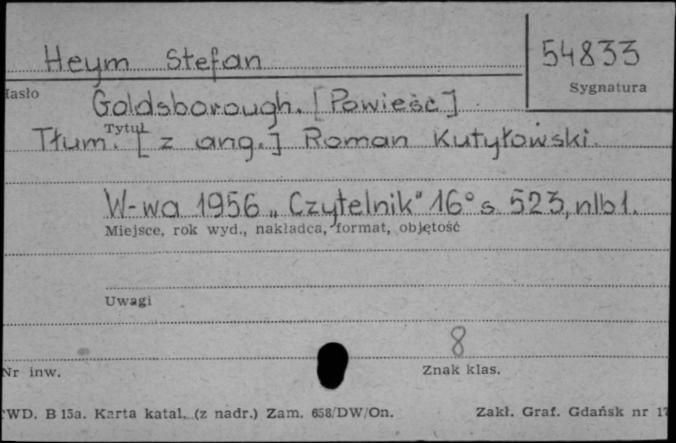 Heym Stefan
54833
Hasło
Sygnatura
Goldsborough. [Powieść]
Tytuł
Tłum. [z ang.] Roman Kutyłowski.
W-wa 1956 „Czytelnik" 16° s. 523, nlb 1.
Miejsce, rok wyd., nakładca, format, objętość
Uwagi
8
Nr inw.
Znak klas.
PWD. B 15a. Karta katal. (z nadr.) Zam. 658/DW/On.
Zakł. Graf. Gdańsk nr 17